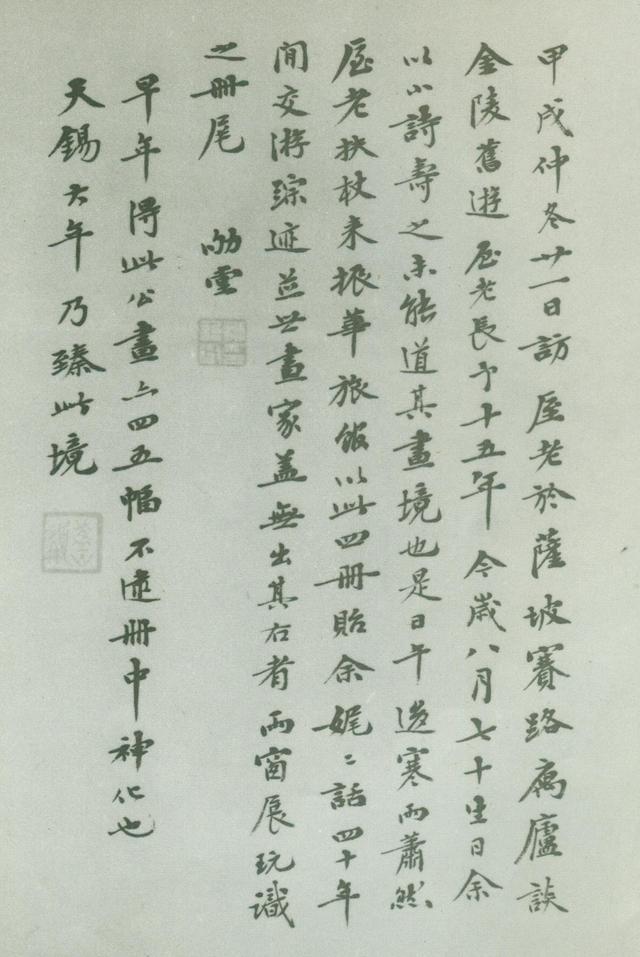 甲戌仲冬廿一日訪厔老於薩坡賽路寓廬談
金陵舊遊厔老長予十五年今歲八月七十生日余
以小詩壽之未能道其畫境也是日午寒雨蕭然
厔老扶杖来振華旅舘以此四冊貽余娓〻話四十年
間交游踪迹並世畫家蓋無出其右者雨窗展玩識
之冊尾 劬堂
早年得此公畫亦四五幅不逮冊中神化也
天錫大年乃臻此境